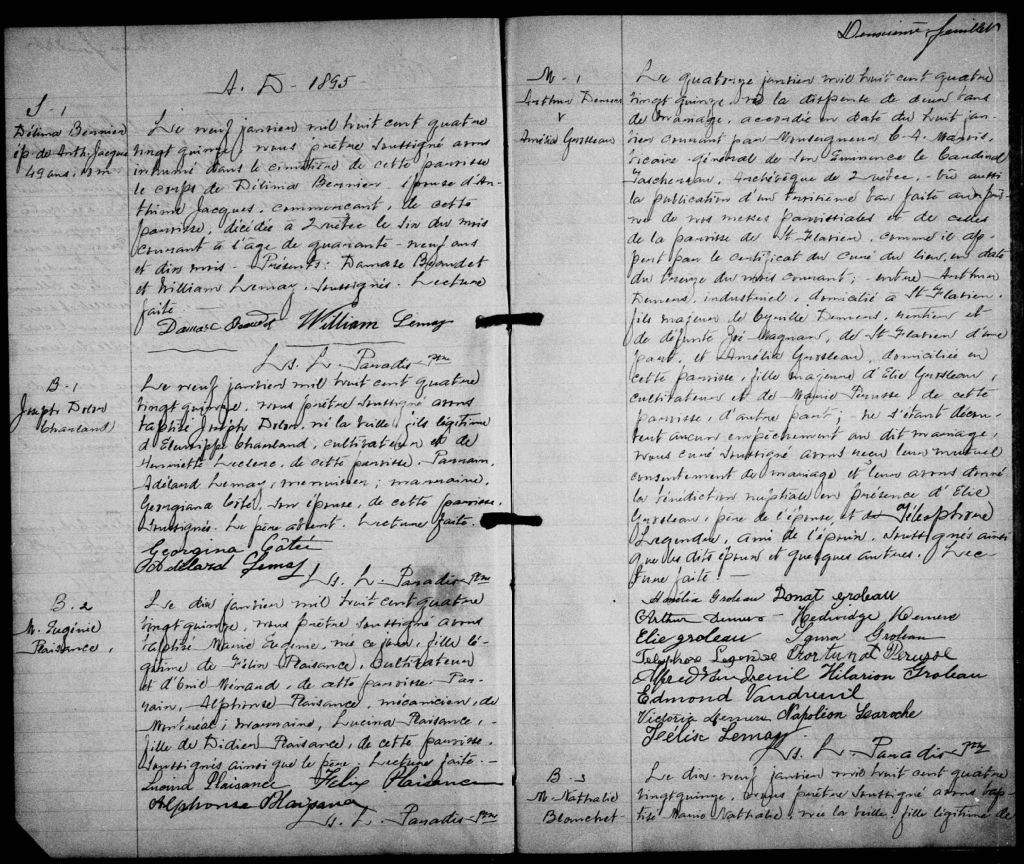 A. D. 1895
S - 1
Délima Bernier
ép. de Anth. Jacques
49 ans, 10 m
Le neuf janvier mil huit cent quatre
vingt quinze, nous prêtre soussigné avons
inhumé dans le cimetière de cette paroisse
le corps de Délima Bernier, épouse d'An-
thime Jacques, commerçant, de cette
paroisse, décédée à Québec le six du mois
courant à l'âge de quarante-neuf ans
et dix mois - Présents: Damase Beaudet
et William Lemay, soussignés. Lecture
faite
Damase Beaudet William Lemay
Ls. L. Paradis ptre
B - 1
Joseph Dolor
Charland
Le neuf janvier mil huit cent quatre
vingt quinze, nous prêtre soussigné avons
baptisé Joseph Dolor, né la veille, fils légitime
d'Eleusippe Charland, cultivateur et de
Henriette Leclerc, de cette paroisse. Parrain,
Adélard Lemay, menuisier; marraine,
Georgiana Côté, son épouse, de cette paroisse,
soussignés. Le père absent. Lecture faite.
Georgina Côtée
Adélard Lemay
Ls. L. Paradis ptre
B - 2
M. Eugénie
Plaisance,
Le dix janvier mil huit cent quatre
vingt quinze, nous prêtre soussigné avons
baptisé Marie Eugénie, née ce jour, fille lé-
gitime de Félix Plaisance, cultivateur
et d' Ménard, de cette paroisse. Par-
rain, Alphonse Plaisance, mécanicien, de
Montréal; marraine, Lucina Plaisance,
fille de Didier Plaisance, de cette paroisse,
soussignés ainsi que le père. Lecture faite.
Plaisance Félix Plaisance
Alphonse Plaisance
Ls. L. Paradis ptre
Deuxième feuillet
M - 1
Arthur Demers
&
Amélia Grosleau
Le quatorze janvier mil huit cent quatre
vingt quinze, vu la dispense de deux bans
de mariage, accordée en date du huit jan-
vier courant par Monseigneur C. A. Marois,
vicaire-général de Son Eminence le Cardinal
Taschereau, Archevêque de Québec, - Vu aussi
la publication d'un troisième ban faite au prô-
ne de nos messes paroissiales et de celles
de la paroisse de St Flavien, comme il ap-
pert par le certificat du curé du lieu, en date
du treize du mois courant; - entre Arthur
Demers, industriel, domicilié à St Flavien,
fils majeur de Cyrille Demers, rentier et
de défunte Zoé Magnan, de St Flavien d'une
part, et Amélia Grosleau, domiciliée en
cette paroisse, fille majeure d'Elie Grosleau,
cultivateur et de Marie Perusse, de cette
paroisse, d'autre part; ne s'étant décou-
vert aucun empêchement au dit mariage,
nous curé soussigné avons reçu leur mutuel
consentement de mariage et leur avons donné
la bénédiction nuptiale en présence d'Elie
Grosleau, père de l'épouse, et de Télesphore
Legendre, ami de l'époux, soussignés ainsi
que les dits époux et quelques autres. Lec-
ture faite. -
Amélia Groleau Donat groleau
Arthur Demers Hedwidge Demers
Elie groleau Groleau
Telesphore Legendre Fortunat Perusse
Alfred Vaudreuil Hilarion Groleau
Edmond Vaudreuil
Victoria Demers Napoléon Laroche
Félix Lemay
Ls. L. Paradis ptre
B - 3
M. Nathalie
Blanchet -
Le dix-neuf janvier mil huit cent quatre
vingt quinze, nous prêtre soussigné avons bap-
tisé Marie Nathalie, née la veille, fille légitime de